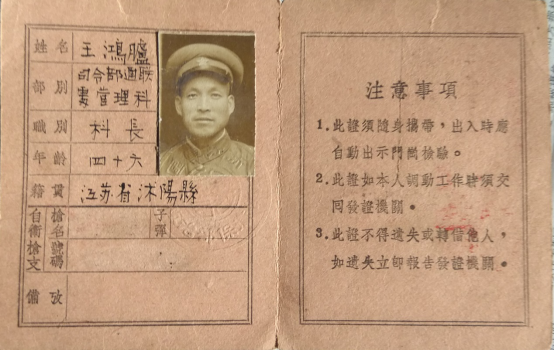 姓名 王鴻臚
部別 司令部通联
處管理科
職別 科長
年齡 四十六
籍貫 江苏省沭陽縣
自衛槍支 槍名號碼 子彈
備攷
注意事項
1.此證須隨身攜帶，出入時應
自動出示門崗檢驗。
2.此證如本人調動工作時須交
回發證機關。
3.此證不得遺失或轉借他人，
如遺失立即報告發證機關。